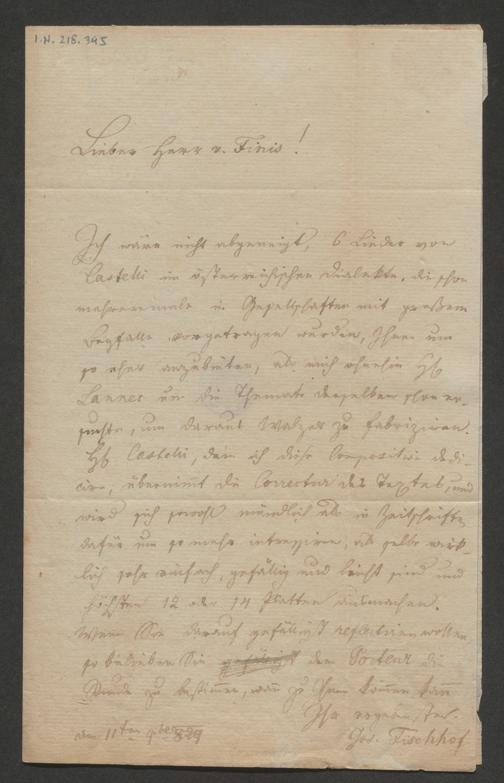 I.N. 218.395
Lieber Herr v. Finis!
Ich wäre nicht abgeneigt, 6 Lieder von
Castelli im österreichischen Dialekte, die schon
mehreremale in Gesellschaften mit großem
Beyfalle vorgetragen wurden, Ihnen um
so eher anzubieten, als mich ohnehin H
Lanner um die Themata derselben schon er-
suchte, um daraus Walzer zu fabriziren.
H Castelli, dem ich diese Composition dedi-
cire, übernimmt die Correctur des Textes, und
wird sich sowohl mündlich als in Zeitschriften
dafür um so mehr intressiren, als selbe wirk-
lich sehr einfach, gefällig und leicht sind und
höchstens 12 oder 14 Platten ausmachen.
Wenn Sie darauf gefälligst reflectiren wollen
so belieben Sie gefälligst dem Porteur die
Stunde zu bestimmen, wann zu Ihnen kommen kann
Ihr ergebenster
den 11ten 829 Jos. Fischhof